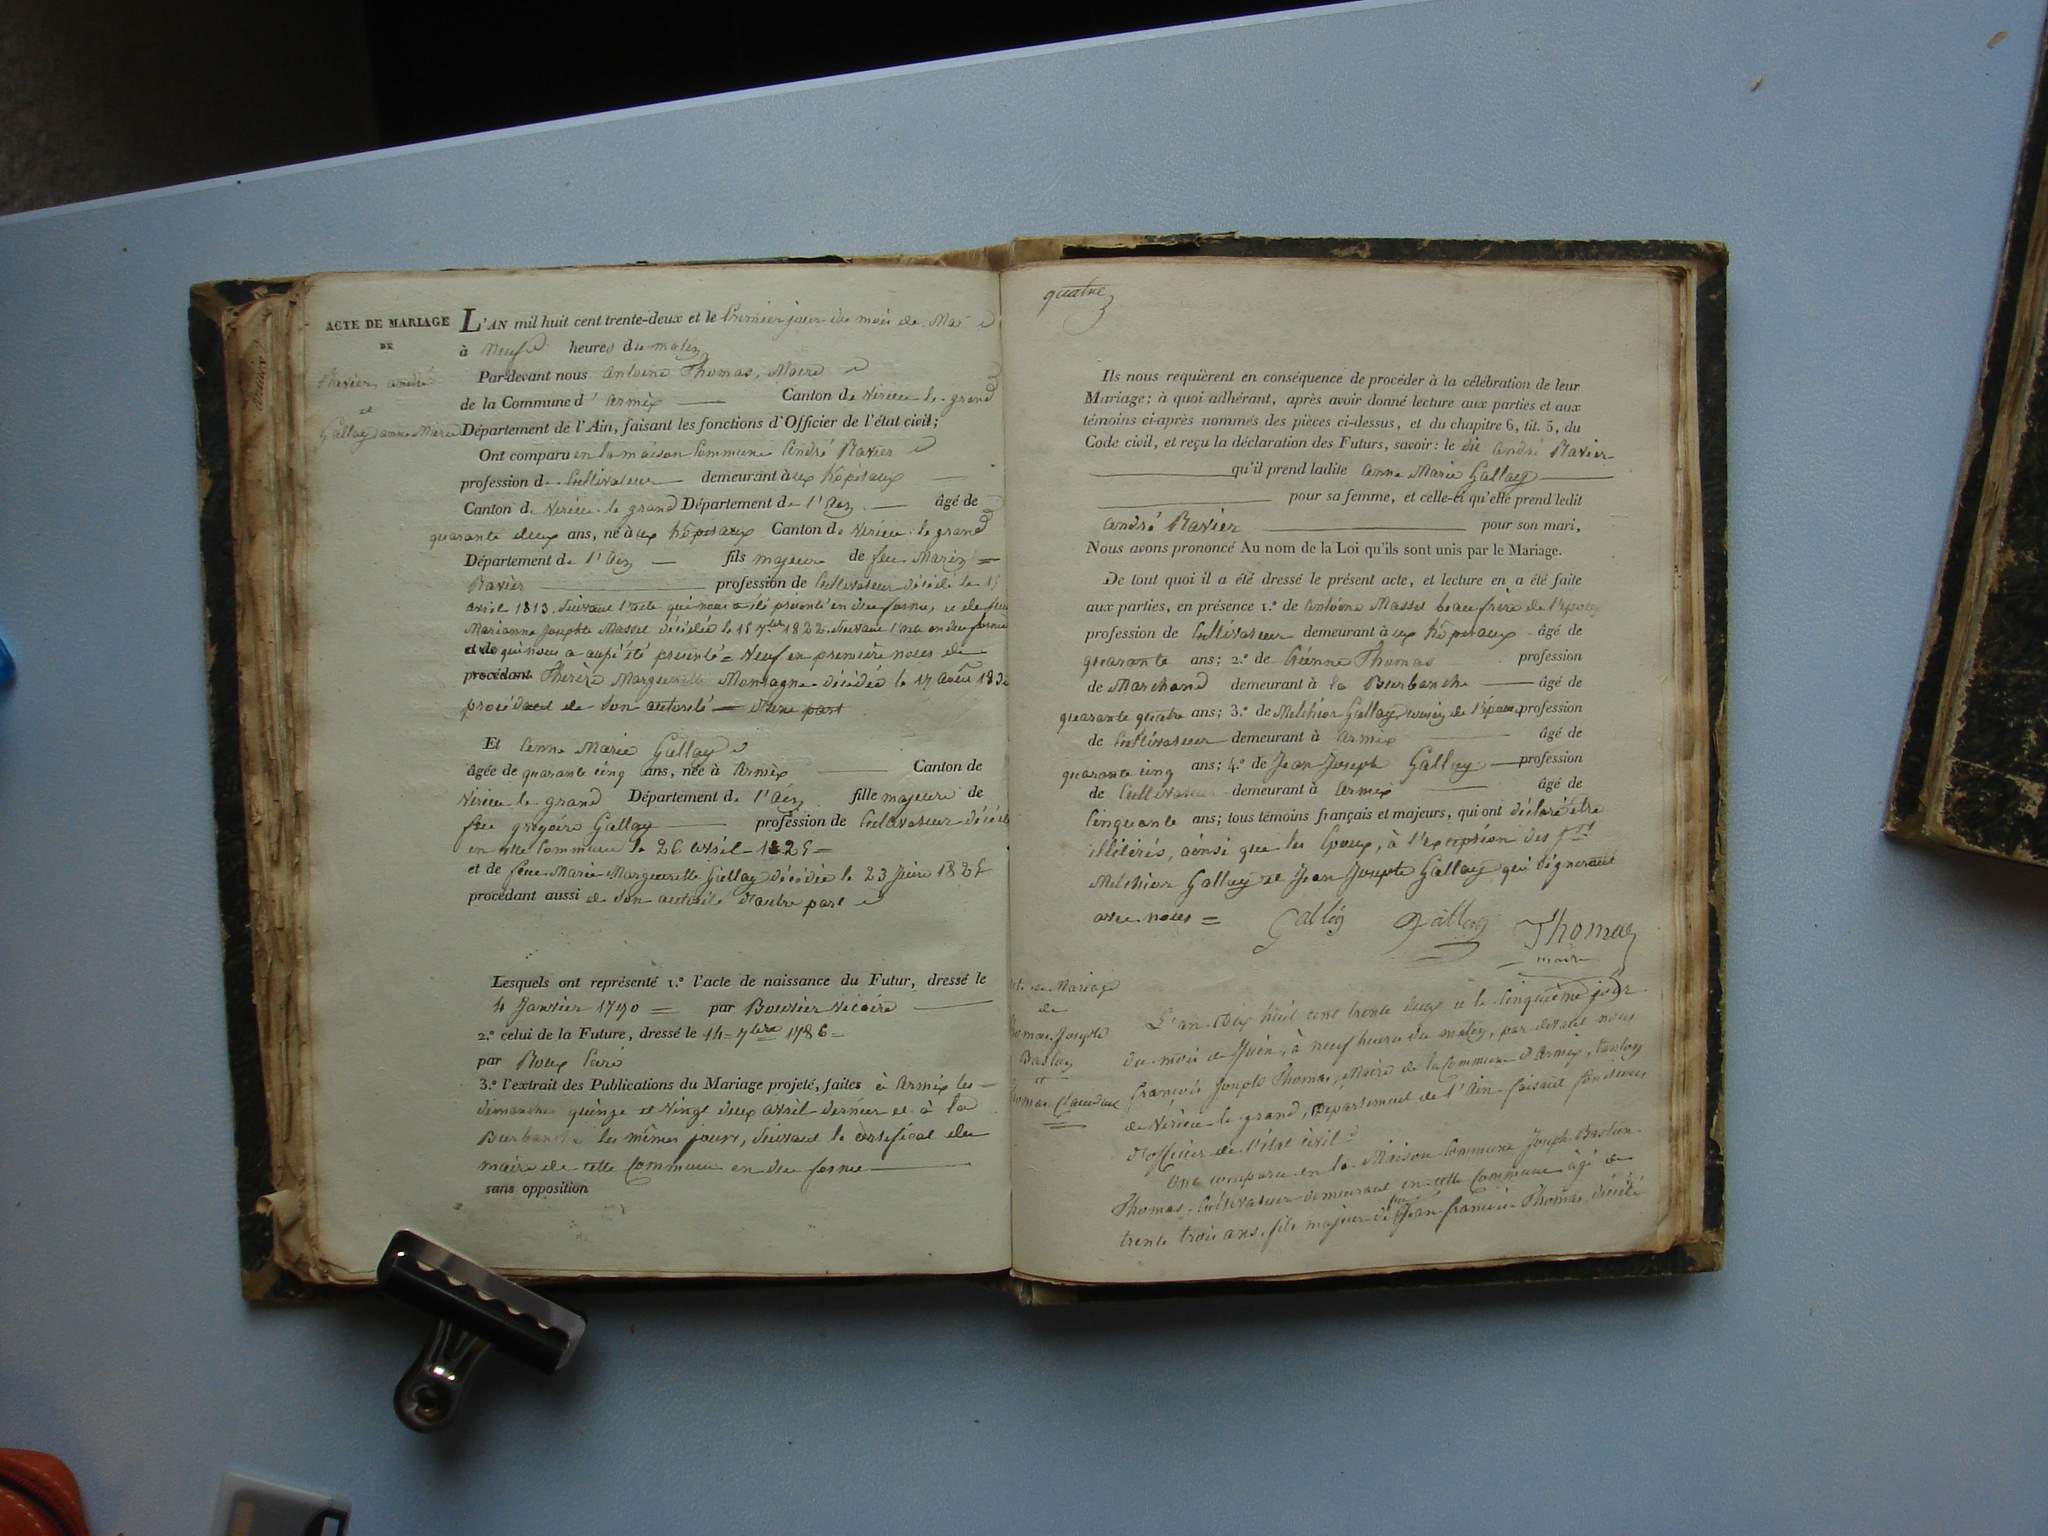 ACTE DE MARIAGE
DE
Ravier andré
et
Gallay anne Marie
L'AN mil huit cent trente-deux et le Premier jour du mois de Mai
à Neuf heures du matin
Par-devant nous Antoine Thomas, Maire
de la Commune d'Armix Canton de Virieu le grand
Département de l'Ain, faisant les fonctions d'Officier de l'état civil;
Ont comparu en la maison Commune André Ravier
profession de Cultivateur demeurant à ux hôpitaux
Canton de Virieu le grand Département de l'Ain âgé de
quarante deux ans, né à ux hôpitaux Canton de Virieu le grand
Département de l'Ain fils majeur de feu Marin =
Ravier profession de Cultivateur décédé le 15
avril 1813 suivant l'acte qui nous a été présenté en due forme, et de feue
Marianne Josephte Massel décédée le 15 7bre 1822 suivant l'acte en due forme
et de qui nous a aussi été présenté = Veuf en première noces de
procédant Marguerite Montagne décédée le 17 août 183
procédant de son autorité d'une part
Et Anne Marie Gallay
âgée de quarante cinq ans, née à Armix Canton de
Virieu le grand Département de l'Ain fille majeure de
feu grégoire Gallay profession de Cultivateur décédé
en cette Commune le 26 avril 1825 =
et de feue Marie Marguerite Gallay décédée le 23 Juin 1825
procédant aussi de son autorité d'autre part
Lesquels ont représenté 1.° l'acte de naissance du Futur, dressé le
4 Janvier 1790 = par Bouvier vicaire
2.° celui de la Future, dressé le 14 = 7bre 1786 =
par Roux Curé
3.° l'extrait des Publications du Mariage projeté, faites à Armix les
dimanches quinze et vingt deux avril dernier et à la
Burbanche les mêmes jours, suivant le certificat du
maire de cette Commune en due forme
sans opposition
quatre
Ils nous requièrent en conséquence de procéder à la célébration de leur
Mariage; à quoi adhérant, après avoir donné lecture aux parties et aux
témoins ci-après nommés des pièces ci-dessus, et du chapitre 6, tit. 5, du
Code civil, et reçu la déclaration des Futurs, savoir: le dit André Ravier
qu'il prend ladite Anne Marie Gallay
pour sa femme, et celle-ci qu'elle prend ledit
André Ravier pour son mari,
Nous avons prononcé Au nom de la Loi qu'ils sont unis par le Mariage.
De tout quoi il a été dressé le présent acte, et lecture en a été faite
aux parties, en présence 1.° de Antoine Massel beau frère de l'époux
profession de Cultivateur demeurant à ux hôpitaux âgé de
quarante ans; 2.° de Etienne Thomas profession
de Marchand demeurant à la Burbanche âgé de
quarante quatre ans; 3.° de Melchior Gallay cousin de l'épouse profession
de Cultivateur demeurant à Armix âgé de
quarante cinq ans; 4.° de Jean Joseph Gallay profession
de Cultivateur demeurant à Armix âgé de
Cinquante ans; tous témoins français et majeurs, qui ont déclaré être
illitérés, ainsi que les Epoux, à l'exception des
Melchior Gallay et Jean Joseph Gallay qui signeront
avec nous = Gallay Gallay Thomas
maire
de Mariage
de
Thomas Joseph
Bastien
et
Thomas Claudine
L'an dix huit cent trente deux et le Cinquième jour
du mois de Juin, à neuf heures du matin, par devant nous
françois Joseph Thomas, Maire de la Commune d'Armix, Canton
de Virieu le grand, Département de l'Ain faisant fonctions
d'officier de l'état civil
Ont comparu en la Maison Commune Joseph Bastien
Thomas, Cultivateur demeurant en cette Commune âgé de
trente trois ans, fils majeur de feu Jean françois Thomas décédé